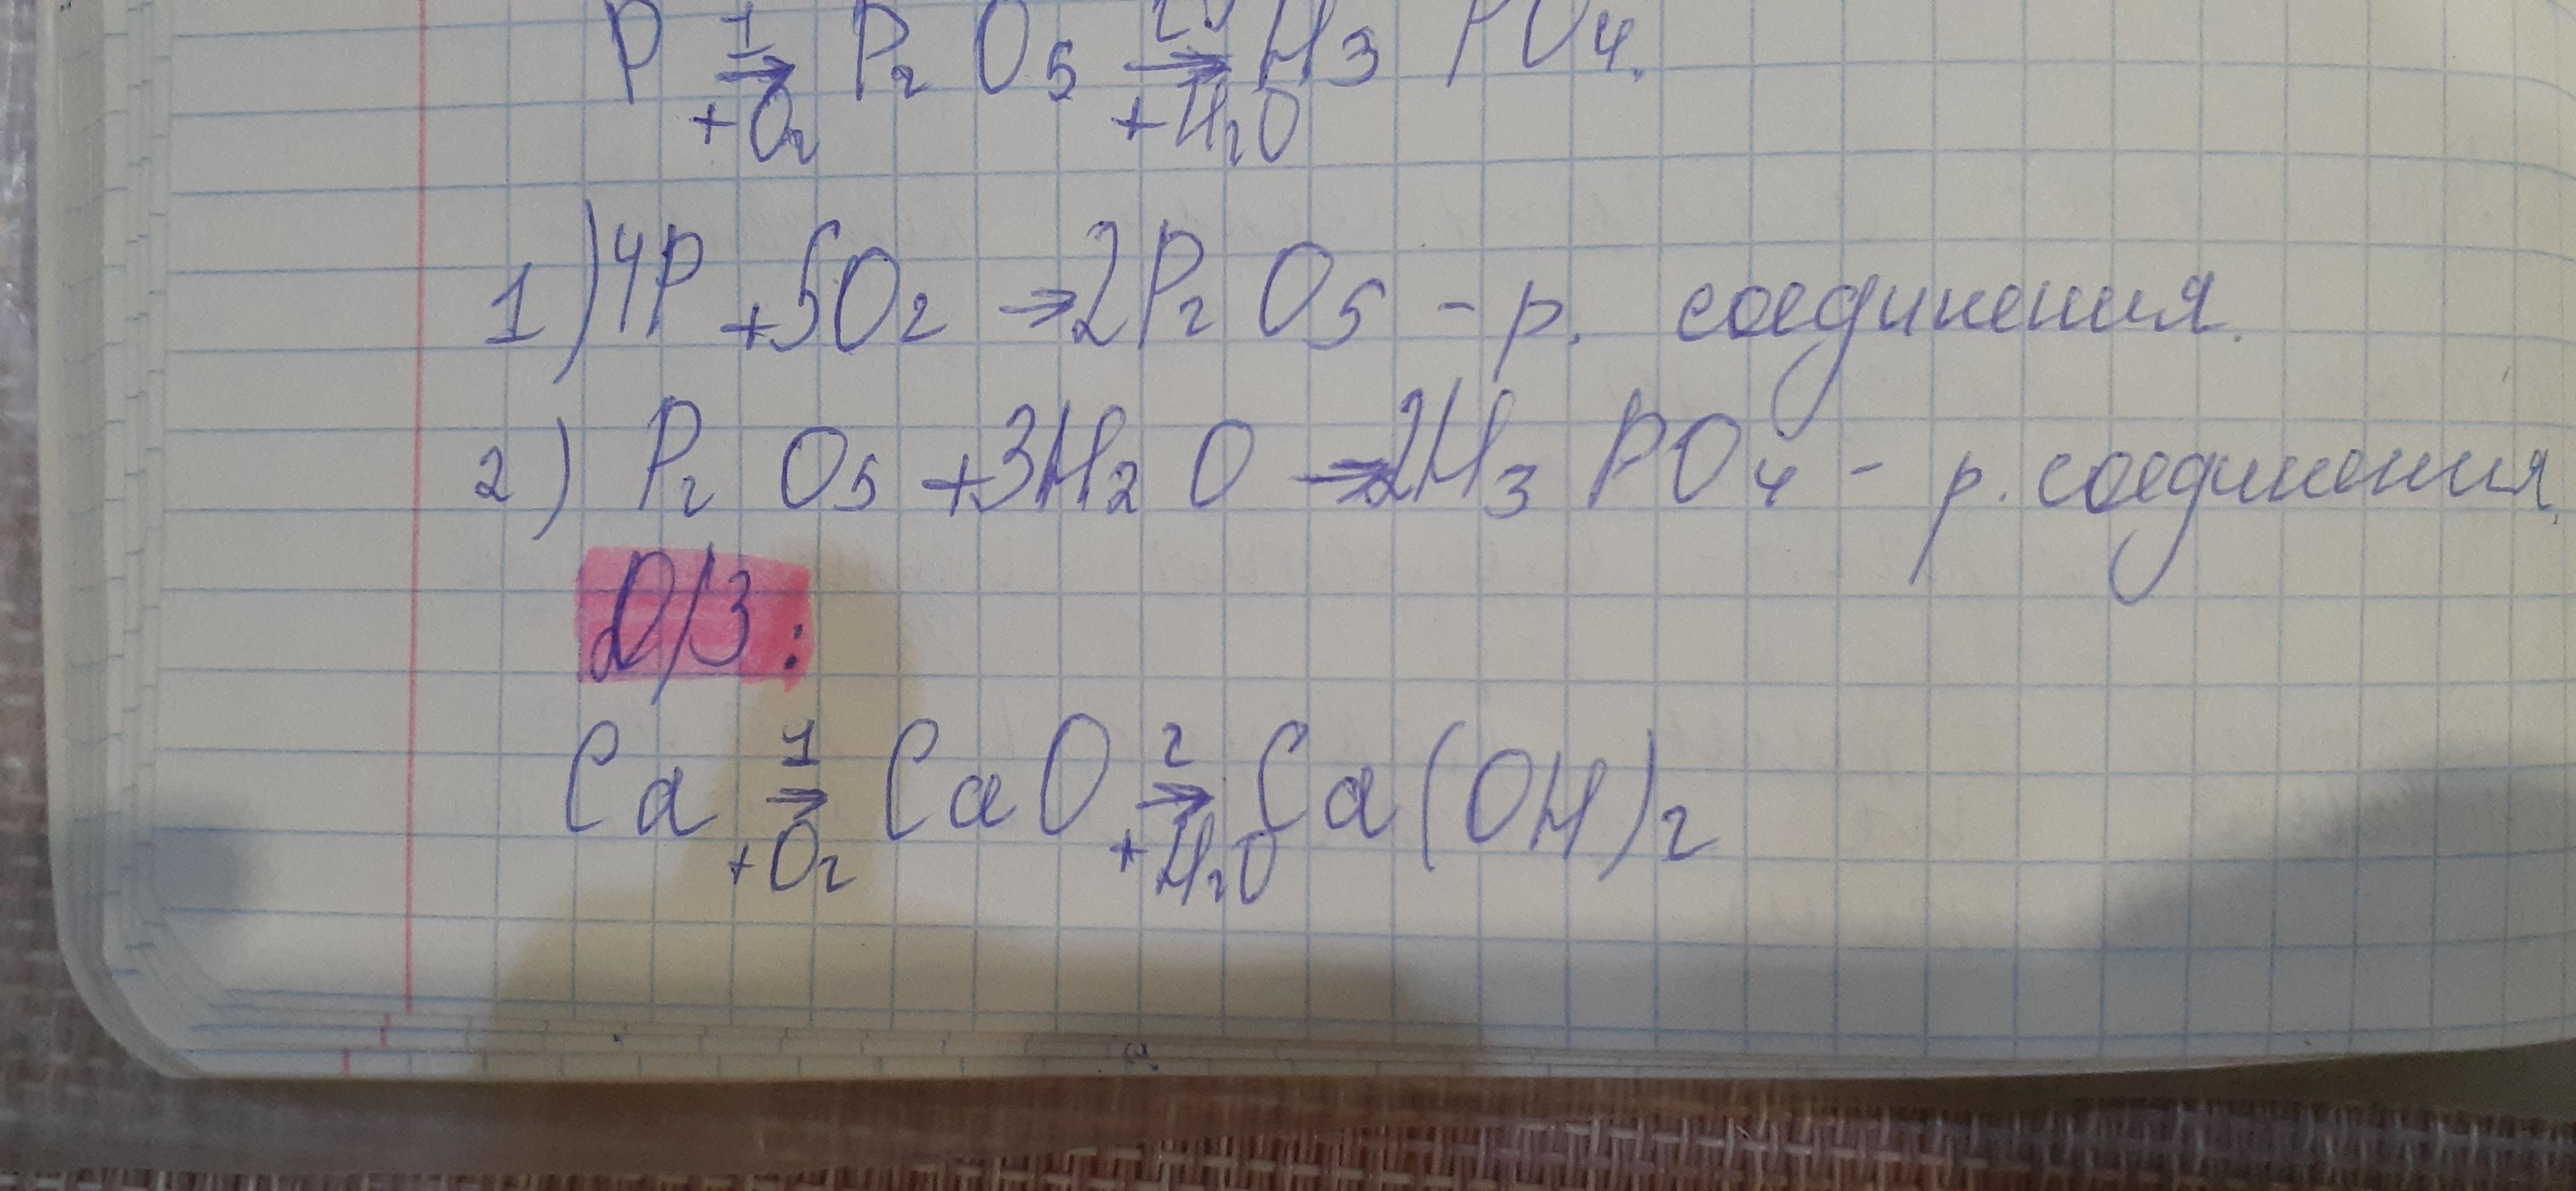 P 1→ +O₂ P₂O₅ 2→ +H₂O H₃PO₄.
1) 4P + 5O₂ → 2P₂O₅ - р. соединения.
2) P₂O₅ + 3H₂O → 2H₃PO₄ - р. соединения.
D/З:
Ca 1→ +O₂ CaO 2→ +H₂O Ca(OH)₂